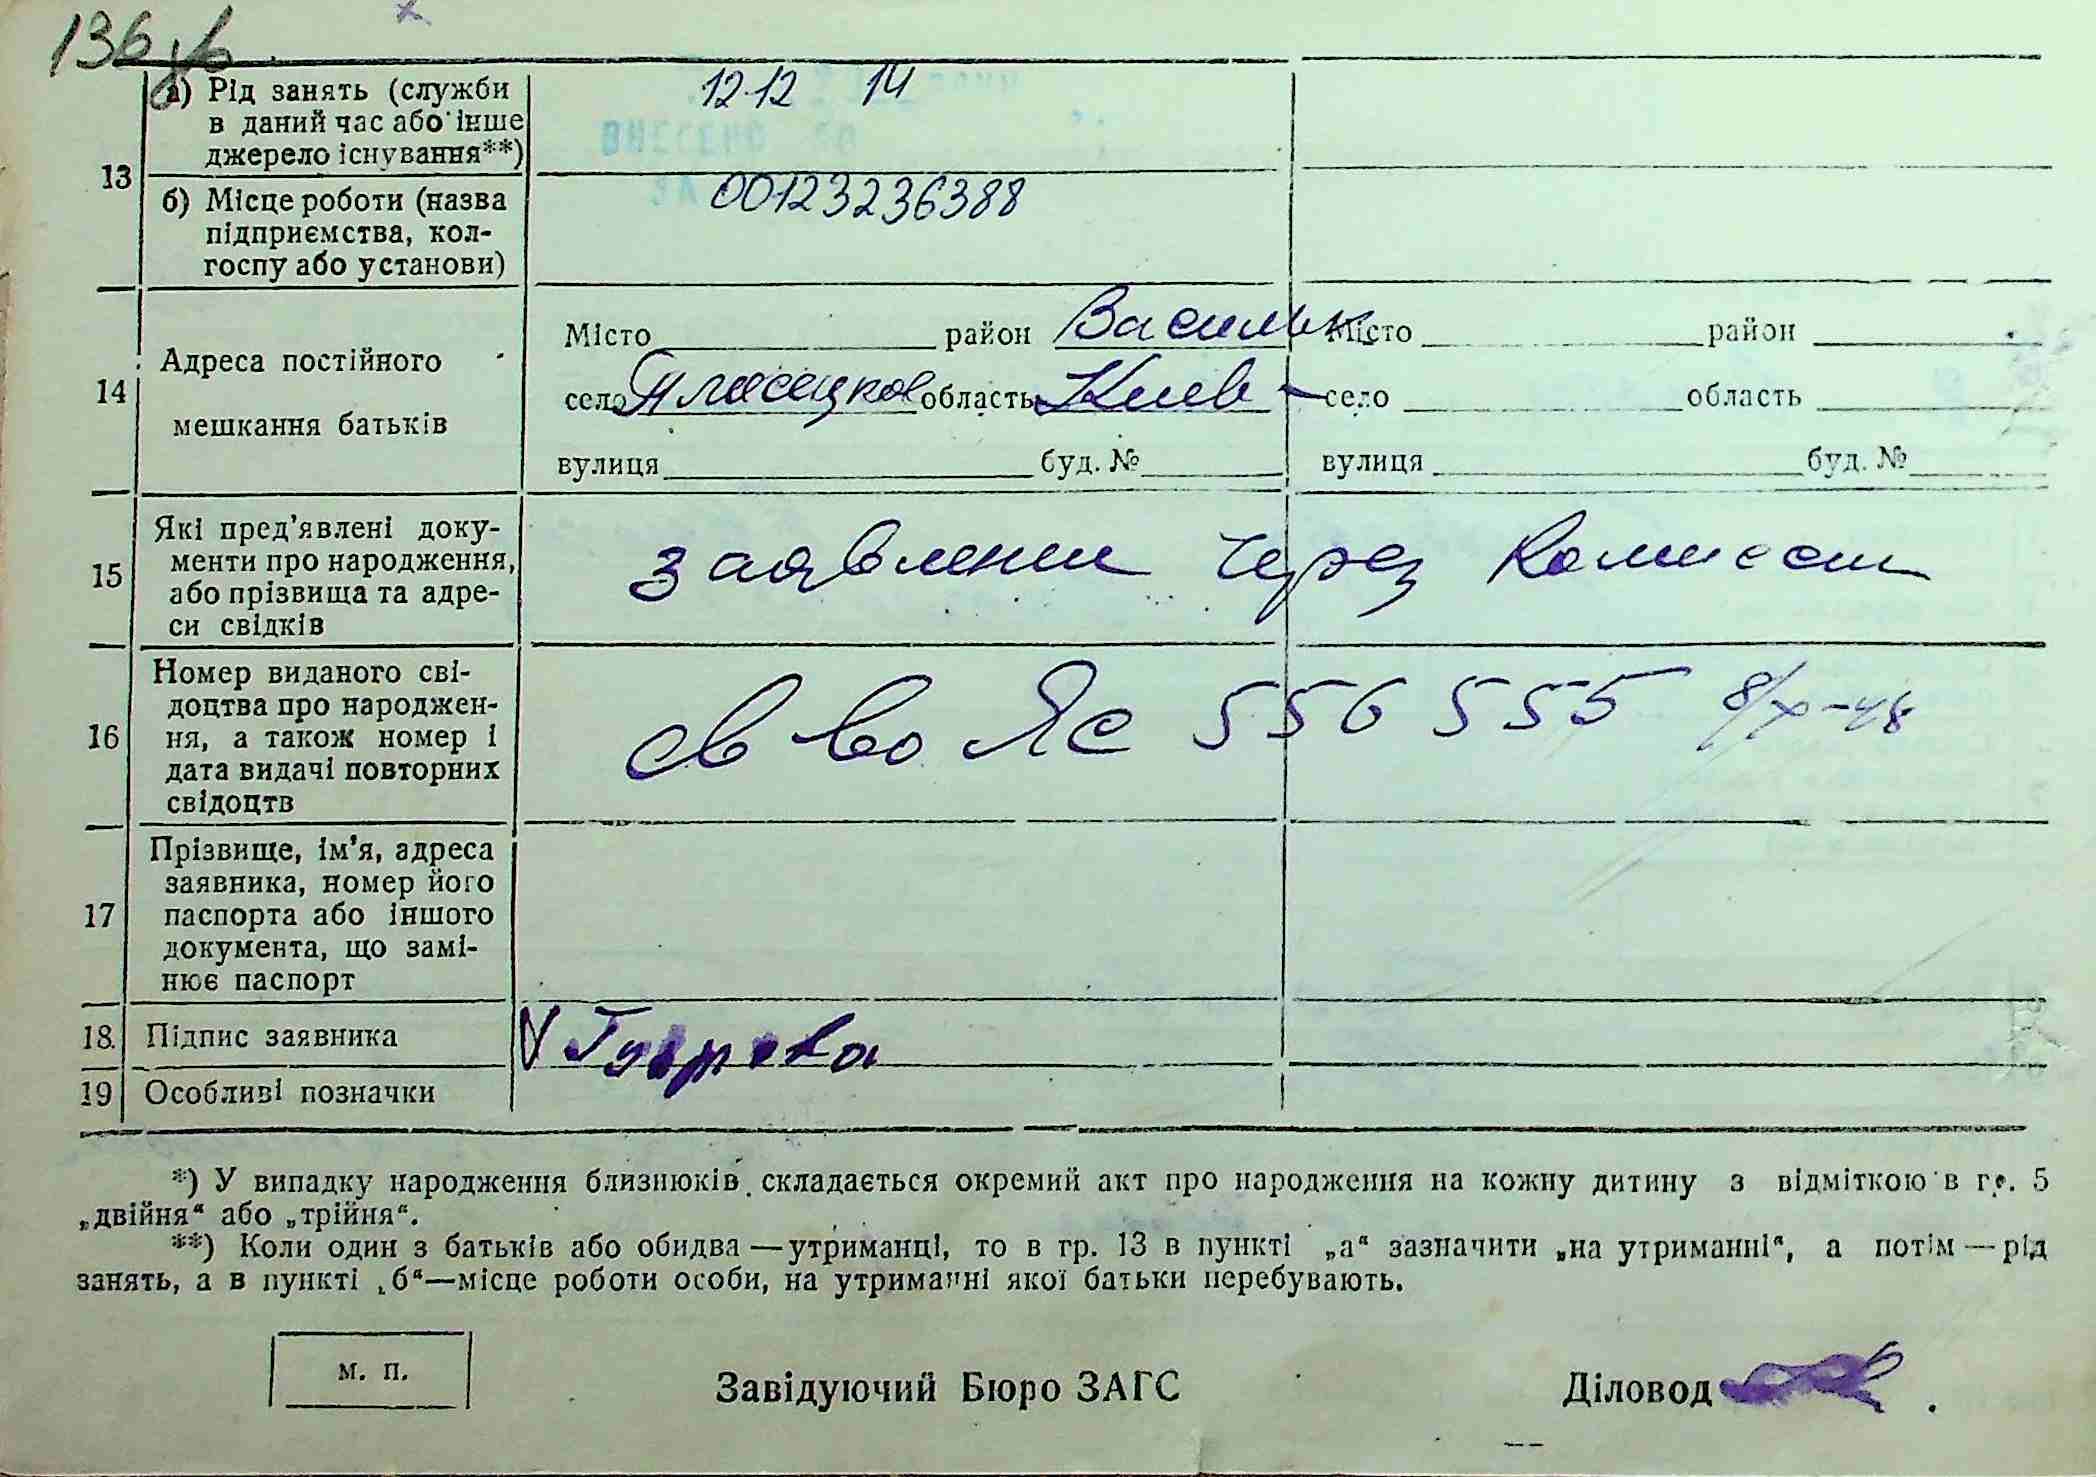 136 зв
13
а) Рід занять (служби
в даний час або інше
джерело існування**)
12.12 14
ВНЕСЕНО ДО
б) Місце роботи (назва
підприємства, кол-
госпу або установи)
00123236388
14
Адреса постійного
мешкання батьків
Місто район Васильк
село Плесецкое область Киев -
вулиця буд. №
Місто район
село область
вулиця буд. №
15
Які пред'явлені доку-
менти про народження,
або прізвища та адре-
си свідків
заявлении через Комиссии
16
Номер виданого сві-
доцтва про народжен-
ня, а також номер і
дата видачі повторних
свідоцтв
св во ЯС 556 555 8/X-48
17
Прізвище, ім'я, адреса
заявника, номер його
паспорта або іншого
документа, що замі-
нює паспорт
18. Підпис заявника
V
19 Особливі позначки
*) У випадку народження близнюків складається окремий акт про народження на кожну дитину з відміткою в гр. 5
„двійня“ або „трійня“.
**) Коли один з батьків або обидва — утриманці, то в гр. 13 в пункті „а“ зазначити „на утриманні“, а потім — рід
занять, а в пункті „б“ — місце роботи особи, на утриманні якої батьки перебувають.
М. П.
Завідуючий Бюро ЗАГС
Діловод